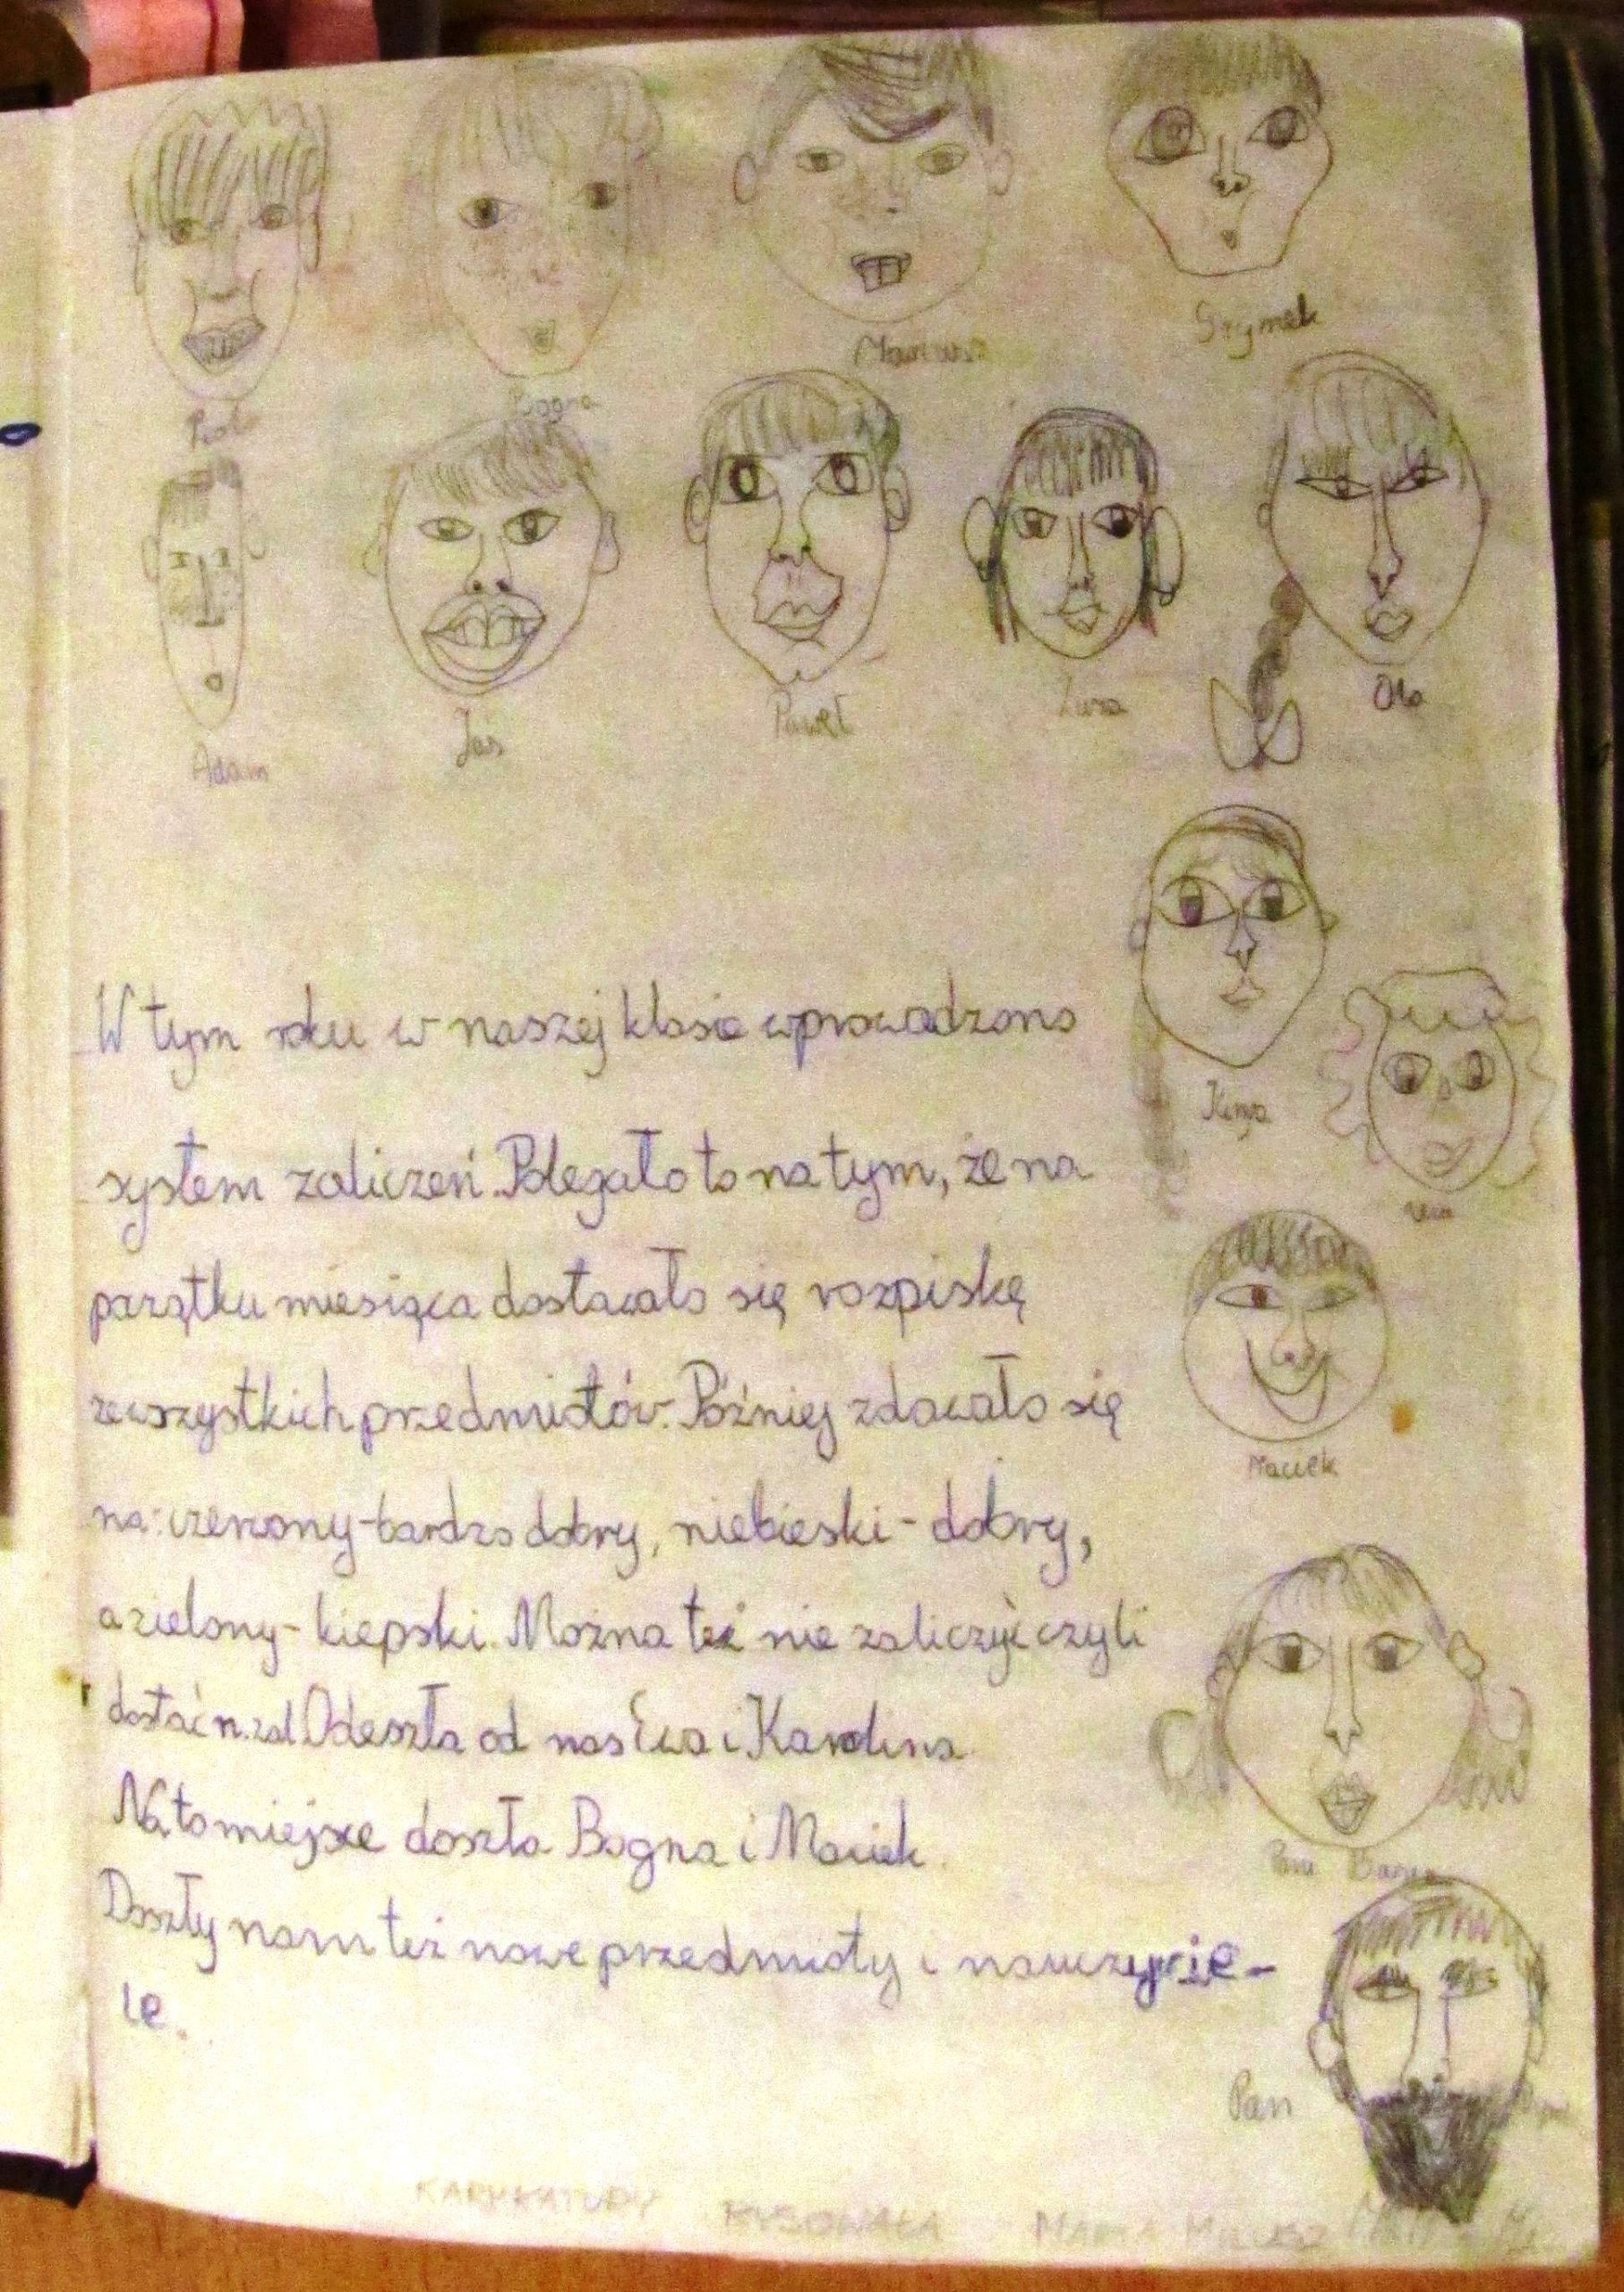 Szymek
Mariusz
Bogna
Piotr
Adam
Jaś
Paweł
Zuza
Ola
Kinga
Maciek
W tym roku w naszej klasie wprowadzono
system zaliczeń. Polegało to na tym, że na
początku miesiąca dostawało się rozpiskę
ze wszystkich przedmiotów. Później zdawało się
na: czerwony - bardzo dobry, niebieski - dobry,
a zielony - kiepski. Można też nie zaliczyć czyli
dostać n.zal Odeszła od nas Ewa i Karolina.
Na to miejsce doszła Bogna i Maciek.
Doszły nam też nowe przedmioty i nauczycie-
le.
Pani Basia
Pan
KARYKATURY RYSOWAŁA MARIA